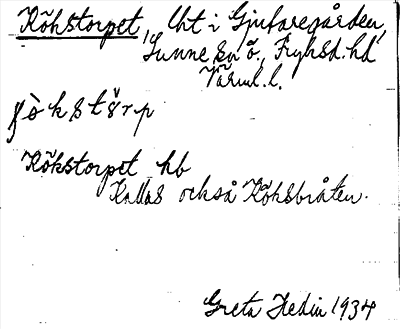 Kökstorpet, lht i Gjutaregården,
Sunne sn ö., Fryksd. hd
Värml. l.
kstörp
Kökstorpet hb
Kallas också Köksbråten.
Greta Hedin 1934